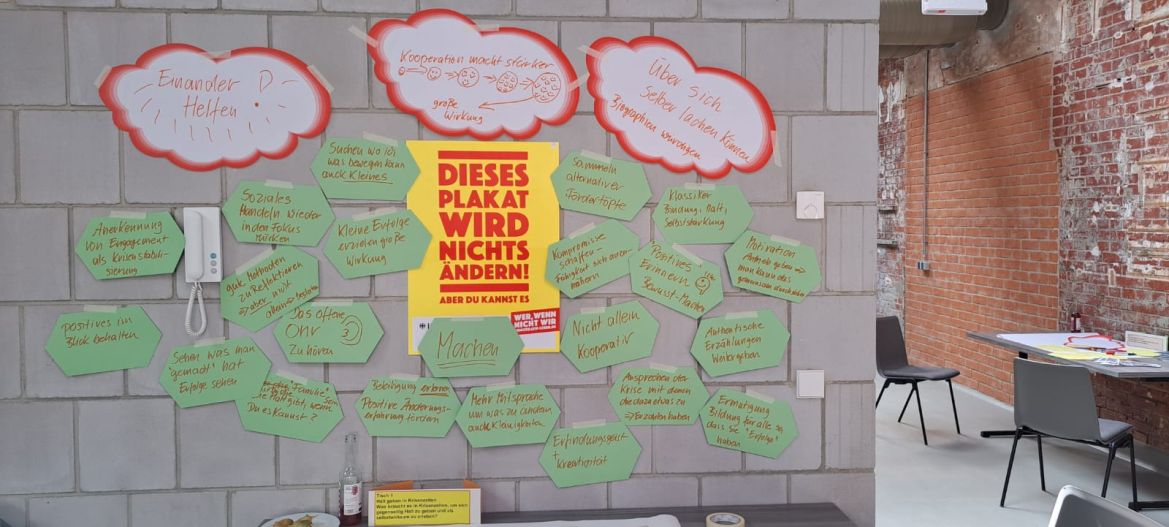 Einander
Helfen
Kooperation macht stärker
große
Wirkung
Über sich
selber lachen können
Biographien würdigen
DIESES
PLAKAT
WIRD
NICHTS
ÄNDERN!
ABER DU KANNST ES
WER, WENN
NICHT WIR
Suchen wo ich
was bewegen kann
auch Kleines
Soziales
Handeln wieder
in den Fokus
rücken
Kleine Erfolge
erzielen große
Wirkung
Anerkennung
von Engagement
als Krisenstabili-
sierung
gute Methoden
zu Reflektieren
Das offene
Ohr
Zu hören
positives im
Blick behalten
Sehen was man
"gemacht" hat
Erfolge sehen
Du es kannst
Machen
Beteiligung
Positive Änderungs-
erfahrung fördern
Mehr Mitsprache
um was zu ändern
auch Kleinigkeiten
Erfindungsgeist
+
Kreativität
Sammeln
alternativer
Fördertöpfe
Klassiker
Bindung, Halt,
Selbststärkung
Kompromisse
schaffen -
Fähigkeit sich anzu-
nähern
Positives
Erinnern
Bewusst-Machen
Motivation
Antrieb geben ⇒
man kann das
gemeinsam durchstehen
Nicht allein
Kooperativ
Authentische
Erzählungen
Weitergeben
Ansprechen der
Krise mit denen
die dazu etwas zu
⇒ Erzählen haben
Ermutigung
Bildung für alle so
dass sie "Erfolge"
haben
Tisch 1
Halt geben in Krisenzeiten
Was braucht es in Krisenzeiten, um sich
gegenseitig Halt zu geben und als
selbstwirksam zu erleben?